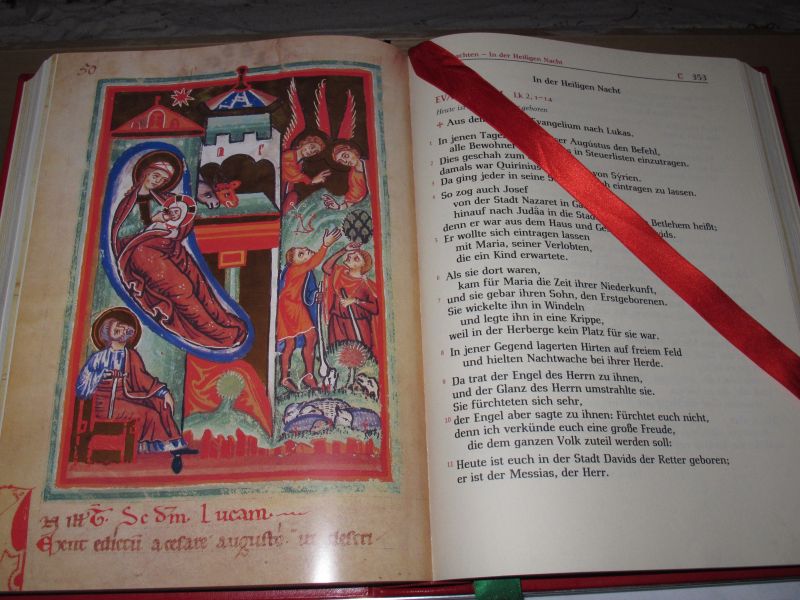 50
Sc dm Lucam
Exiit edictū a cesare augusto ut descri-
– In der Heiligen Nacht C 353
In der Heiligen Nacht
Lk 2, 1–14
Heute ist geboren
Aus Evangelium nach Lukas.
1 In jenen Augústus den Befehl,
alle Bewohner in Steuerlisten einzutragen.
2 Dies geschah zum
damals war von Sýrien.
3 Da ging jeder in seine sich eintragen zu lassen.
4 So zog auch Josef
von der Stadt Nazaret in
hinauf nach Judäa in die Betlehem heißt;
denn er war aus dem Haus und
5 Er wollte sich eintragen lassen
mit Maria, seiner Verlobten,
die ein Kind erwartete.
6 Als sie dort waren,
kam für Maria die Zeit ihrer Niederkunft,
7 und sie gebar ihren Sohn, den Erstgeborenen.
Sie wickelte ihn in Windeln
und legte ihn in eine Krippe,
weil in der Herberge kein Platz für sie war.
8 In jener Gegend lagerten Hirten auf freiem Feld
und hielten Nachtwache bei ihrer Herde.
9 Da trat der Engel des Herrn zu ihnen,
und der Glanz des Herrn umstrahlte sie.
Sie fürchteten sich sehr,
10 der Engel aber sagte zu ihnen: Fürchtet euch nicht,
denn ich verkünde euch eine große Freude,
die dem ganzen Volk zuteil werden soll:
11 Heute ist euch in der Stadt Davids der Retter geboren;
er ist der Messias, der Herr.